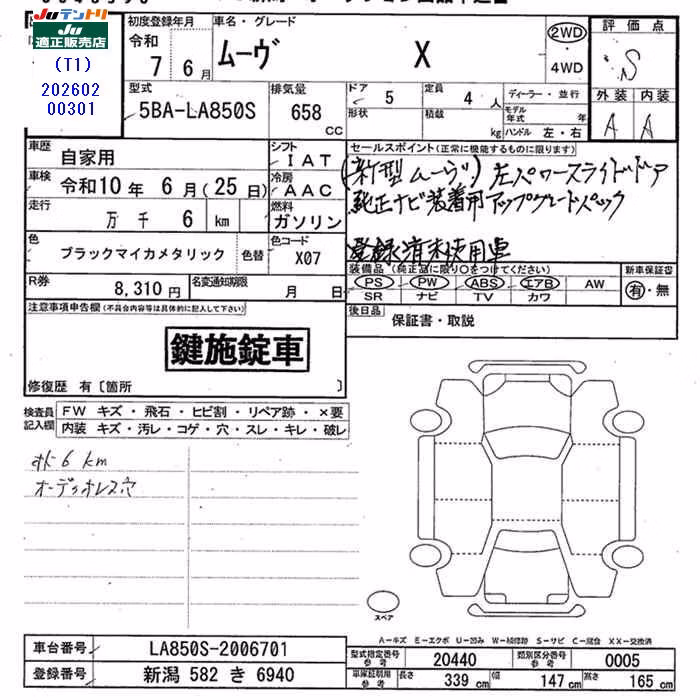 Juテントリ
Ju適正販売店
(T1)
202602
00301
初度登録年月
令和
7 6月
車名・グレード
ムーヴ X
2WD
・
4WD
評価点
S
外装 内装
A A
型式
5BA-LA850S
排気量
658
cc
ドア 5
形状
定員 4 人
積載 kg
ディーラー・並行
モデル年式 年
ハンドル 左・右
車歴 自家用
シフト IAT
車検 令和10年 6月(25日)
冷房 AAC
走行 万 千 6 km
燃料 ガソリン
色 ブラックマイカメタリック 色替
色コード X07
R券 8,310円
名変通知期限 月 日
セールスポイント(正常に機能するものに限ります)
(新型ムーヴ) 左パワースライドドア
純正ナビ装着用アップグレードパック
登録済未使用車
装備品(純正品に限り○をつけてください)
PS PW ABS エアB AW
SR ナビ TV カワ
新車保証書
有・無
後日品
保証書・取説
注意事項申告欄(不具合内容等は具体的に記入して下さい)
鍵施錠車
修復歴 有〔箇所 〕
検査員記入欄
FW キズ・飛石・ヒビ割・リペア跡・×要
内装 キズ・汚レ・コゲ・穴・スレ・キレ・破レ
メ6km
オーディオレス穴
スペア
A-キズ E-エクボ U-凹み W-補修跡 S-サビ C-腐食 XX-交換済
車台番号 LA850S-2006701
登録番号 新潟 582 き 6940
型式指定番号 参考 20440
類別区分番号 参考 0005
車庫証明用 参考 長さ 339 cm 幅 147 cm 高さ 165 cm